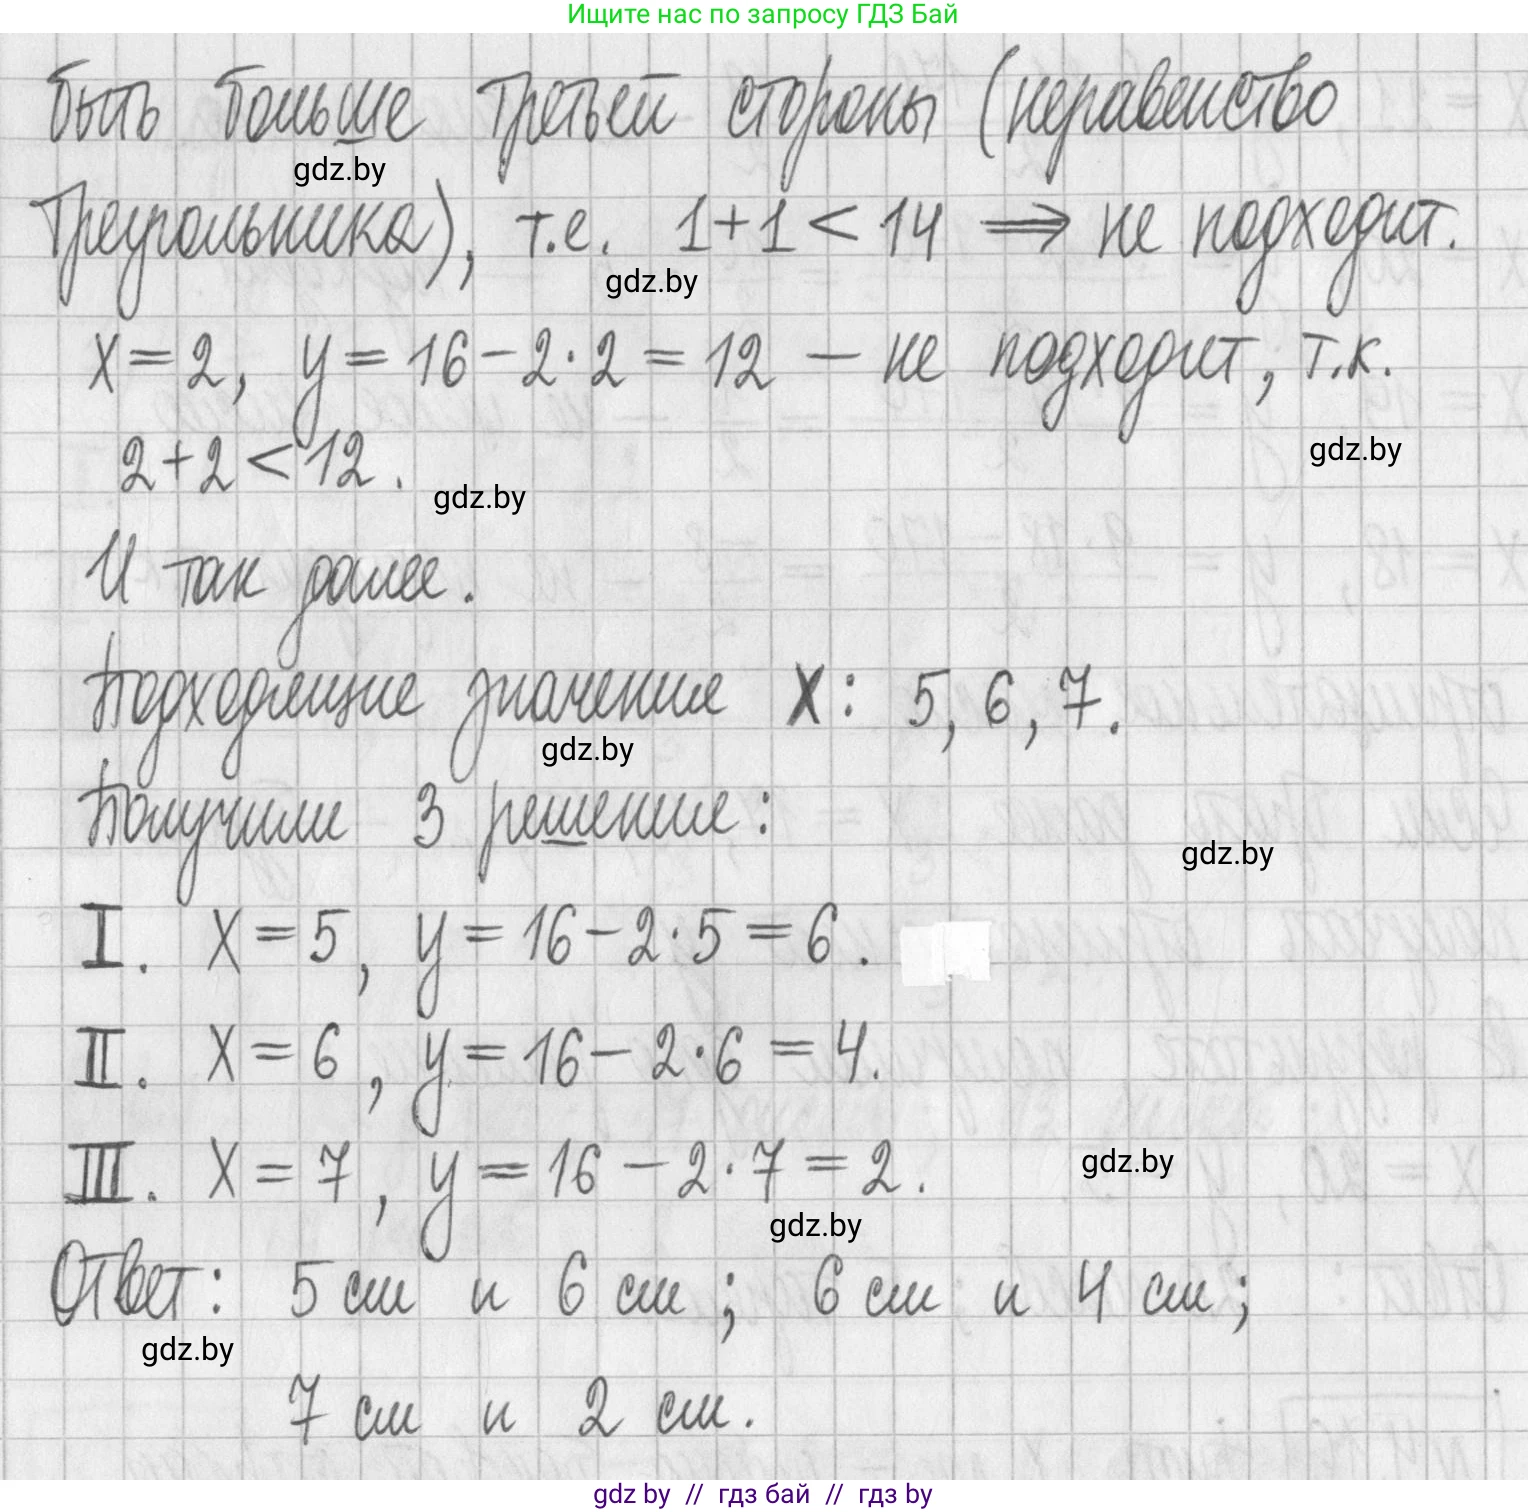 Ищите нас по запросу ГДЗ Бай
быть больше третьей стороны (неравенство
gdz.by
треугольника), т.е. 1+1 < 14 ⟹ не подходит.
gdz.by
x = 2, y = 16 - 2·2 = 12 — не подходит, т.к.
gdz.by
2+2 < 12.
gdz.by
И так далее.
Подходящие значения x: 5, 6, 7.
gdz.by
Получили 3 решения:
gdz.by
I. x = 5, y = 16 - 2·5 = 6.
II. x = 6, y = 16 - 2·6 = 4.
III. x = 7, y = 16 - 2·7 = 2.
gdz.by
gdz.by
Ответ: 5 см и 6 см; 6 см и 4 см;
gdz.by
7 см и 2 см.
gdz by // гдз бай // гдз by